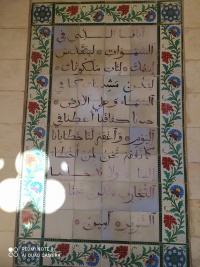 أبانا الذي في
السموات ليتقدس
اسمك ليأت ملكوتك
لتكن مشيئتك كما في
السماء وعلى الأرض
خبزنا كفافنا أعطنا في
اليوم واغفر لنا خطايانا
كما نغفر نحن لمن أخطأ
إلينا ولا
التجارب لكن نجنا
الشرير آمين
REDMI NOTE 8
AI QUAD CAMERA